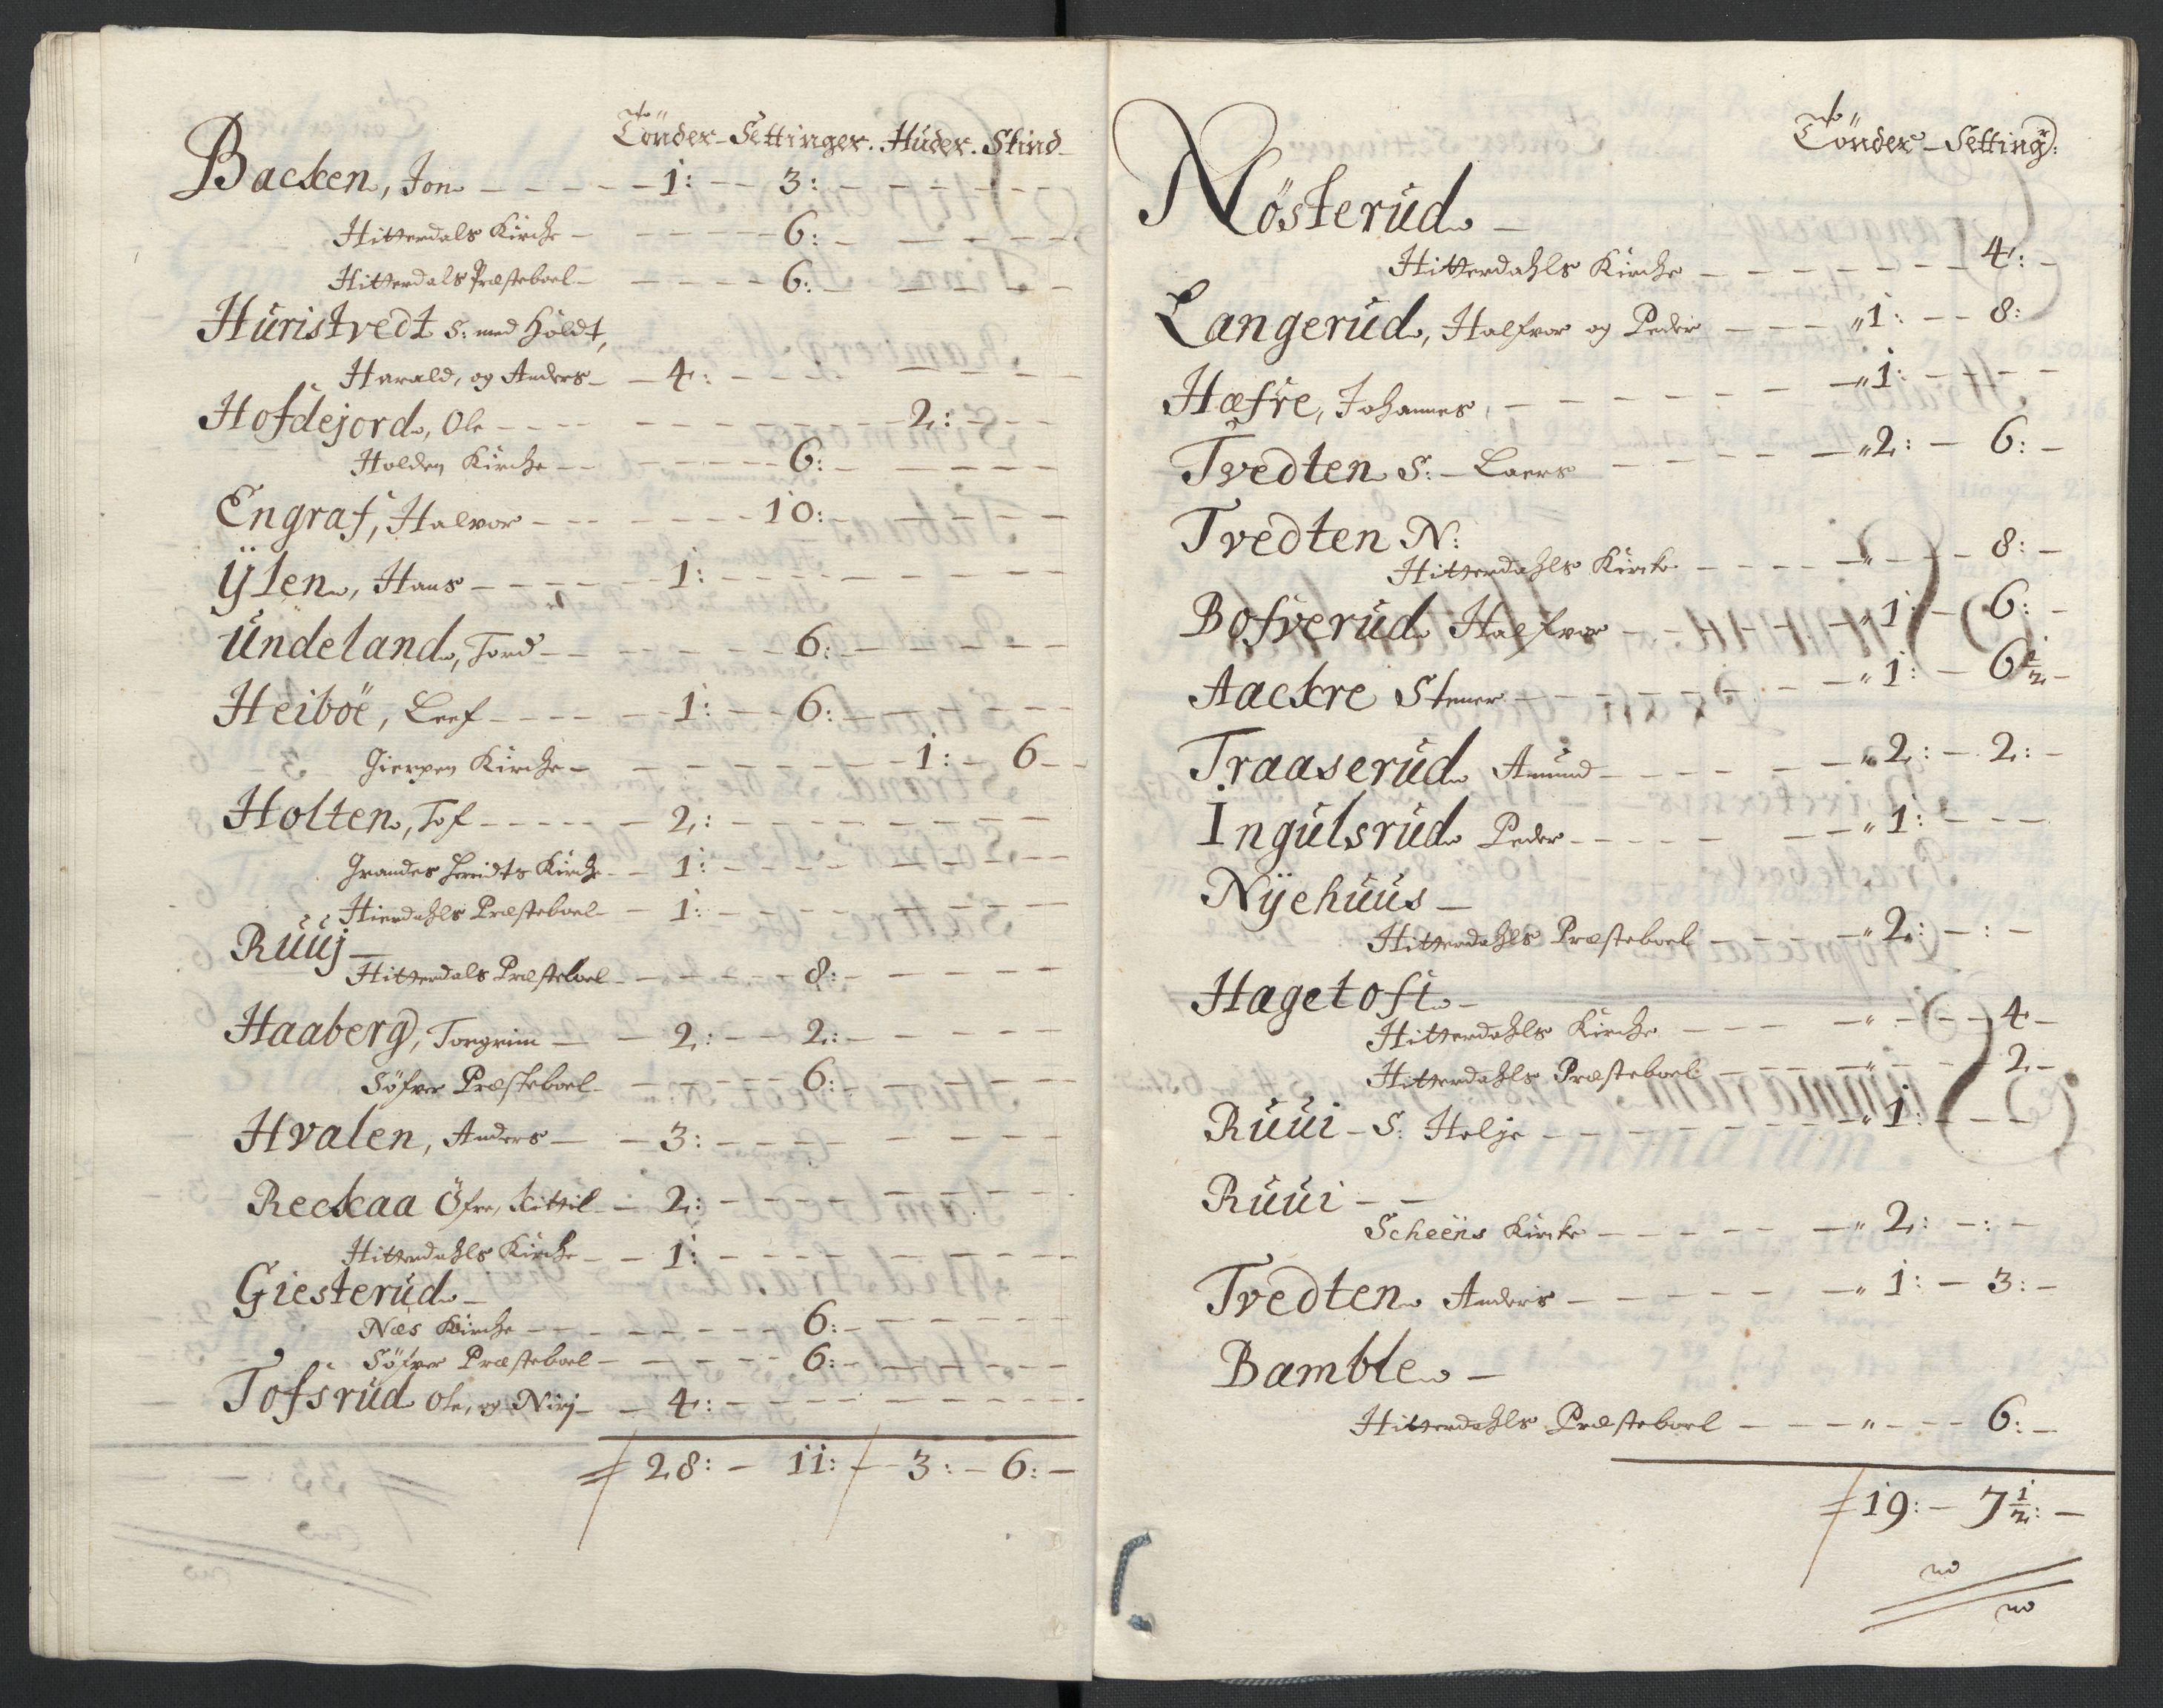 Tönder - Settinger. Huder. Skind
Backen, Jon - 1: - 3: -
Hitterdals Kirche - 6: -
Hitterdals Præsteboel - 6: -
Huristvedt S: med Holdt,
Harald, og Anders - 4: -
Hofdejord, Ole - 2: -
Holden Kirche - 6: -
Engraf, Halvor - 10: -
Ÿlen, Hans - 1: -
Undeland, Tord - 6: -
Heiböe, Leef - 1: - 6: -
Gierpen Kirche - 1: - 6 -
Holten, Tof - 2: -
Grandes Kirche - 1: -
Hierdahls Præsteboel - 1: -
Ruuj -
Hitterdals Præsteboel - 8: -
Haaberg, Torgrim - 2: - 2: -
Söfver Præsteboel - 6: -
Hvalen, Anders - 3: -
Reckaa Öfre, Kittil - 2: -
Hitterdahls Kirche - 1: -
Giesterud -
Næs Kirche - 6: -
Söfver Præsteboel - 6: -
Tofsrud Ole, og Nirj - 4: -
28: - 11: - 3: - 6: -
Tönder - Setting:
Nösterud -
Hitterdahls Kirche - 4: -
Langerud, Halfvor og Peder - " 1: - 8:
Hæfre, Johannes, - " 1: -
Tvedten S: - Laers - " 2: - 6: -
Tvedten N:
Hitterdahls Kircke - " - 8: -
Bofverud Halfvor - " 1: - 6: -
Aackre Stener - " 1: - 6 1/2 -
Traaserud Amund - " 2: - 2: -
Ingulsrud Peder - " 1: -
Nÿehuus -
Hitterdahls Præsteboel - " 2: - : -
Hagetoft -
Hitterdahls Kirche - " - 4 -
Hitterdahls Præsteboel - " - 2 -
Ruui - S: Helje - " 1: -
Ruui - -
Scheens Kircke - " 2: - : -
Tvedten Anders - " 1: - 3: -
Bamble -
Hitterdahls Præsteboel - " - 6: -
19: - 7 1/2: -